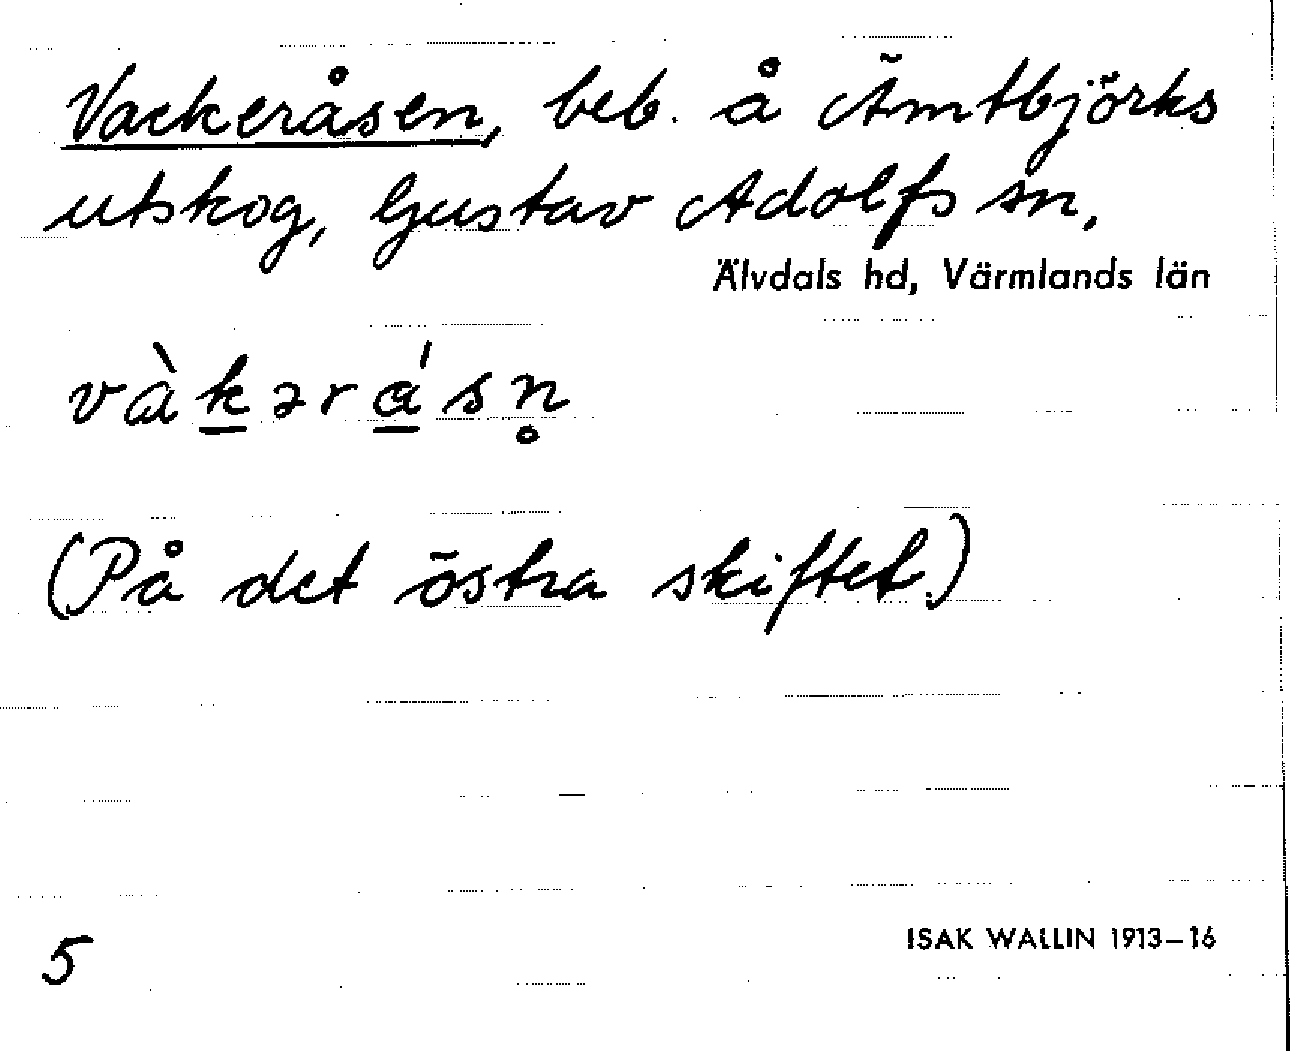 Vackeråsen, beb. å Ämtbjörks
utskog, Gustav Adolfs sn.
Älvdals hd, Värmlands län
vàkərásn̥
(På det östra skiftet.)
5
ISAK WALLIN 1913–16